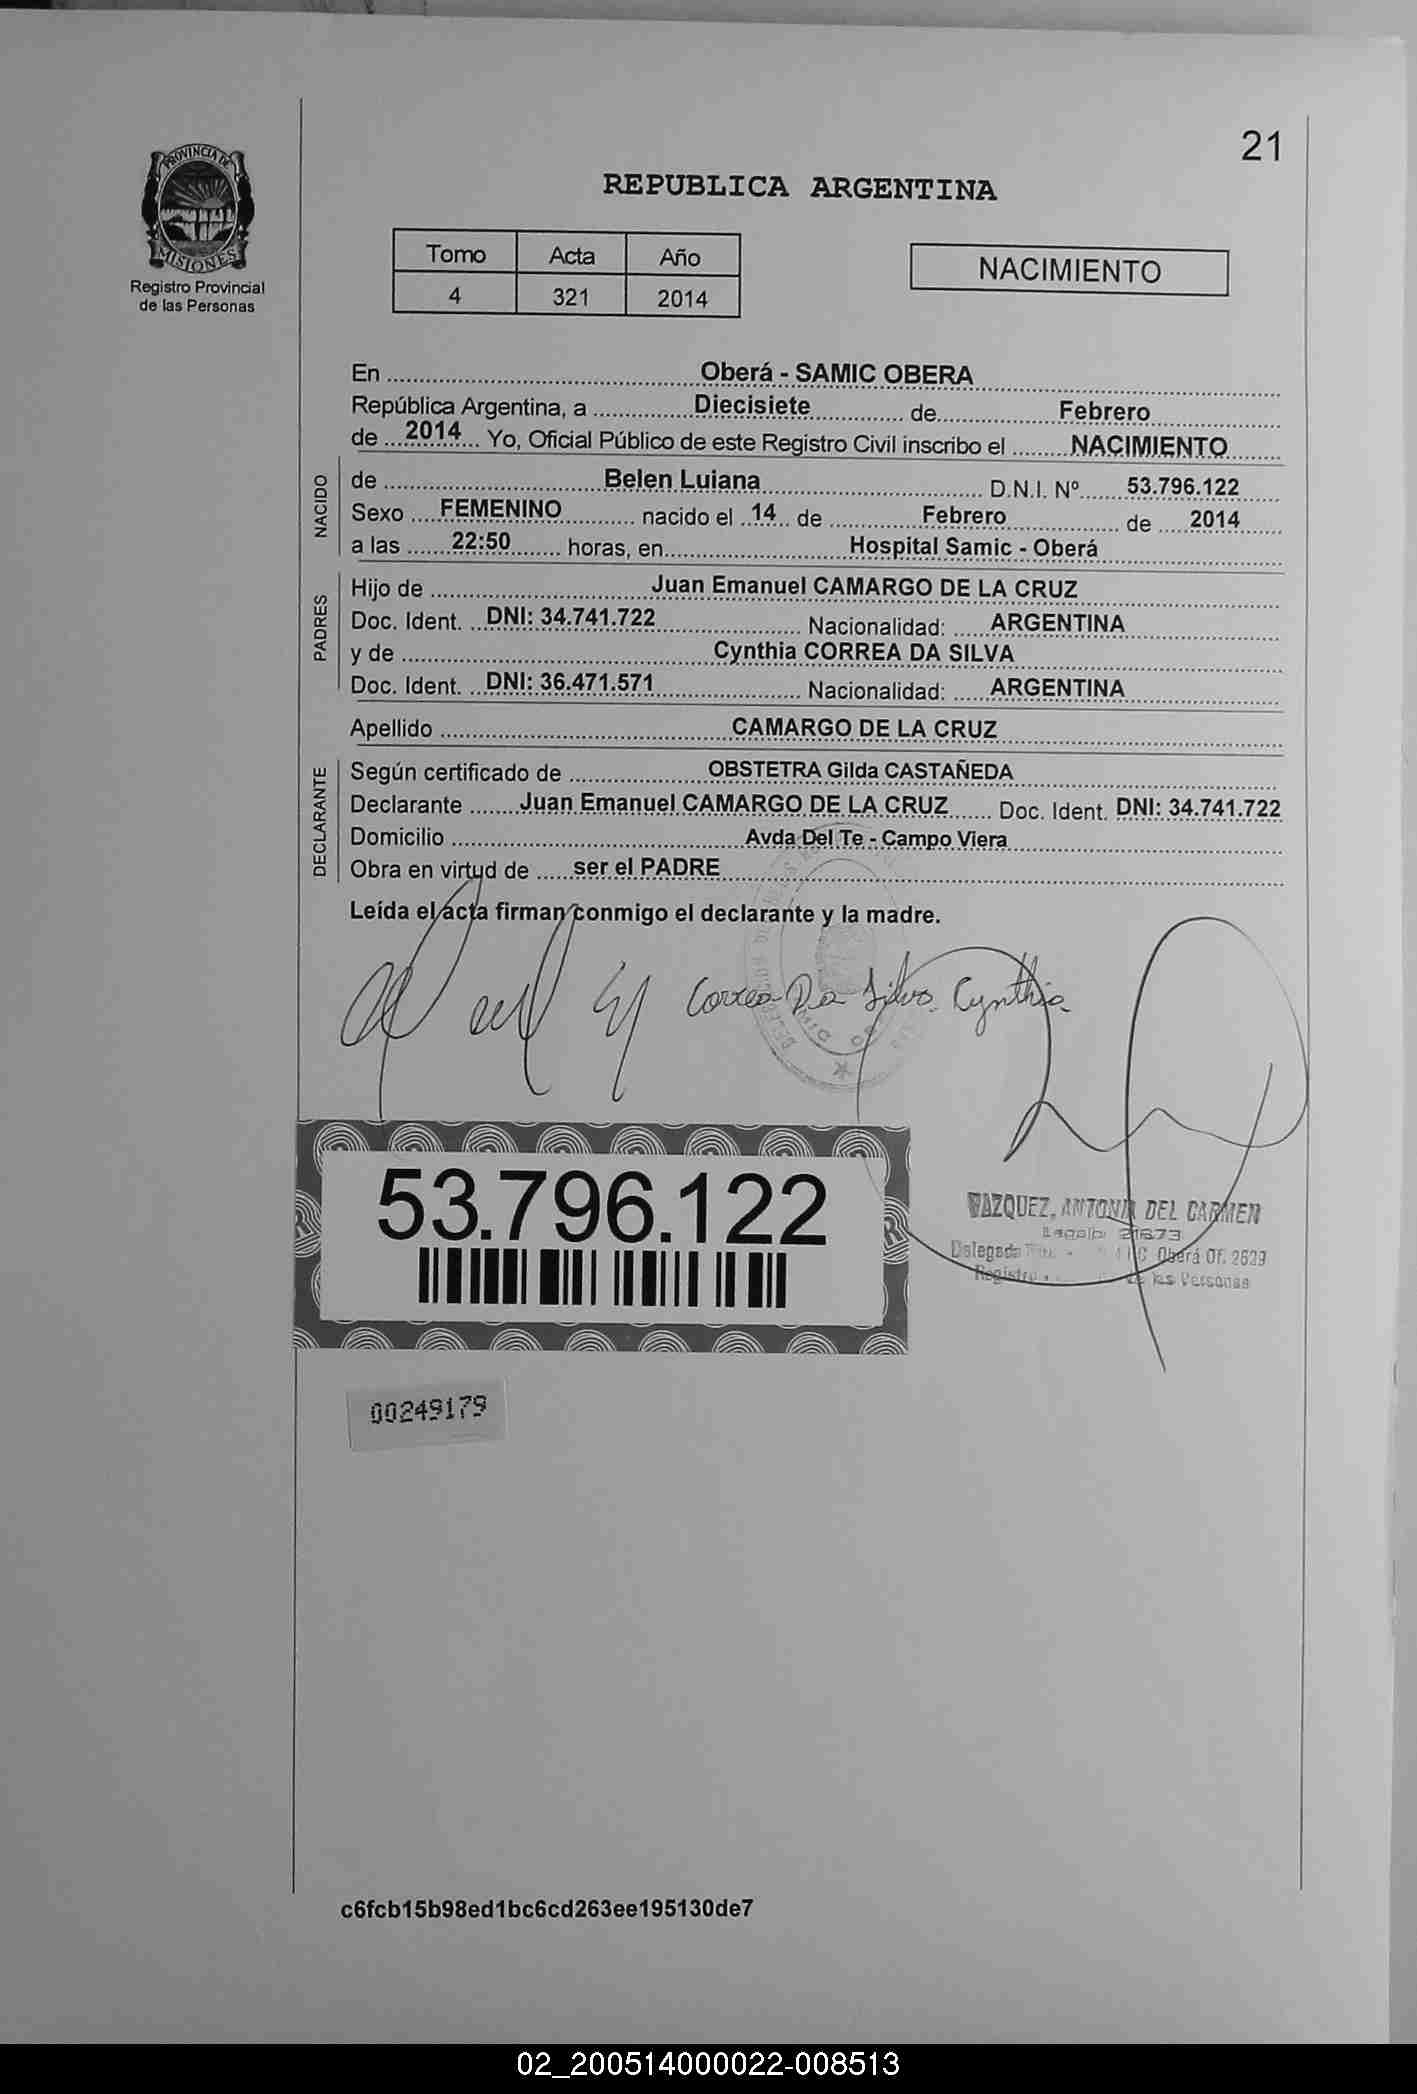 21
PROVINCIA DE
MISIONES
Registro Provincial
de las Personas
REPUBLICA ARGENTINA
Tomo Acta Año
4 321 2014
NACIMIENTO
En Oberá - SAMIC OBERA
República Argentina, a Diecisiete de Febrero
de 2014 Yo, Oficial Público de este Registro Civil inscribo el NACIMIENTO
NACIDO
de Belen Luiana D.N.I. Nº 53.796.122
Sexo FEMENINO nacido el 14 de Febrero de 2014
a las 22:50 horas, en Hospital Samic - Oberá
PADRES
Hijo de Juan Emanuel CAMARGO DE LA CRUZ
Doc. Ident. DNI: 34.741.722 Nacionalidad: ARGENTINA
y de Cynthia CORREA DA SILVA
Doc. Ident. DNI: 36.471.571 Nacionalidad: ARGENTINA
Apellido CAMARGO DE LA CRUZ
DECLARANTE
Según certificado de OBSTETRA Gilda CASTAÑEDA
Declarante Juan Emanuel CAMARGO DE LA CRUZ Doc. Ident. DNI: 34.741.722
Domicilio Avda Del Te - Campo Viera
Obra en virtud de ser el PADRE
Leída el acta firman conmigo el declarante y la madre.
Correa Da Silva Cynthia
53.796.122
VAZQUEZ, ANTONIA DEL CARMEN
Legajo 21673
Delegada Oberá Of. 2629
Registro de las Personas
00249179
c6fcb15b98ed1bc6cd263ee195130de7
02_200514000022-008513